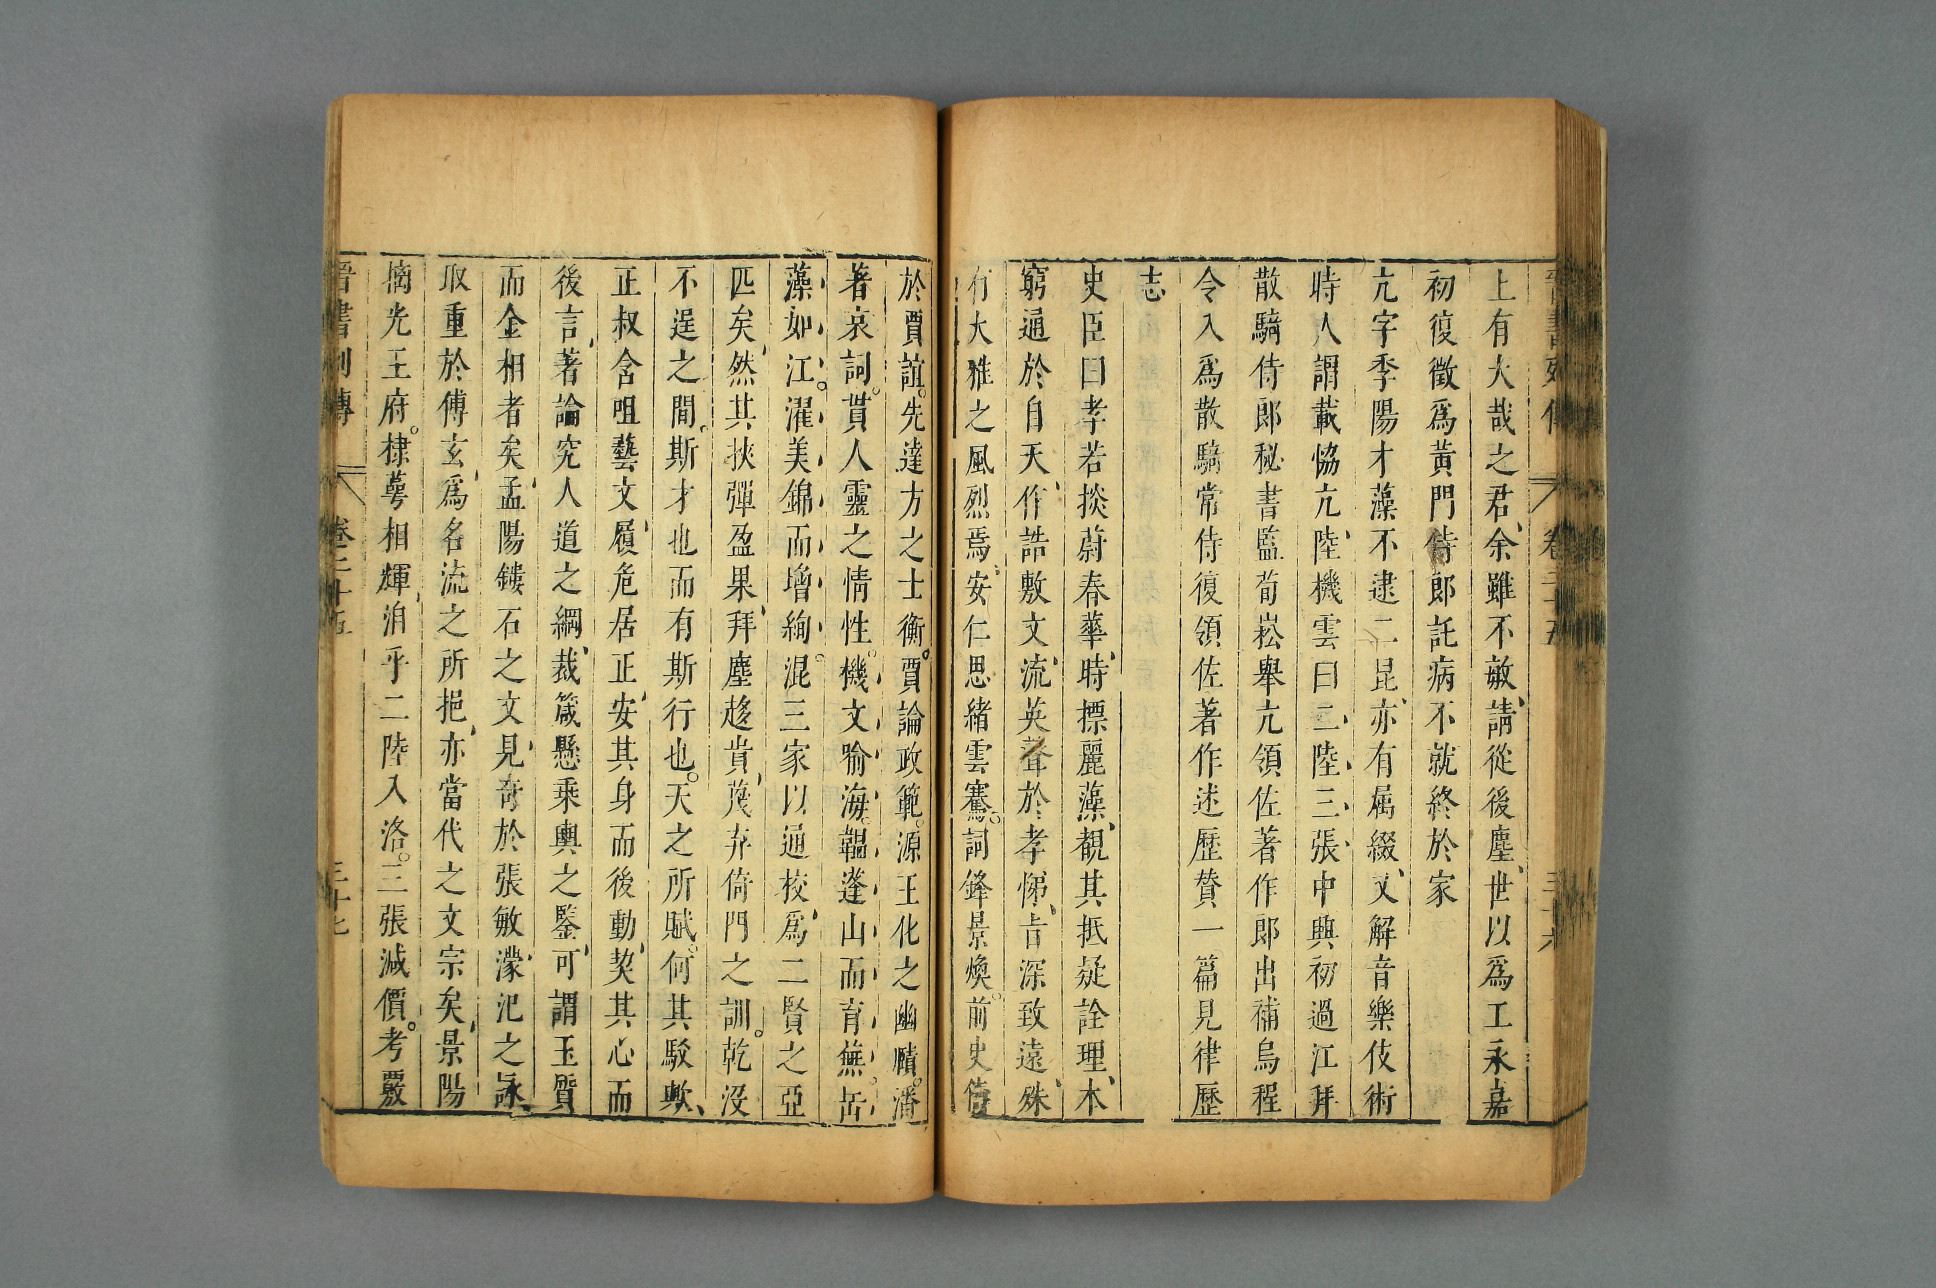 晉書列傳 卷二十五 三十六
上有大哉之君、余雖不敏、請從後塵、世以爲工永嘉
初復徵爲黃門侍郎託病不就終於家
亢字季陽才藻不逮二昆、亦有属綴、又解音樂伎術
時人謂載協亢、陸機雲曰二陸、三張、中興初過江拜
散騎侍郎秘書監荀崧舉亢領佐著作郎出補烏程
令入爲散騎常侍復領佐著作述歷贊一篇見律歷
志
史臣曰孝若掞蔚春華、時摽麗藻、覩其抵疑詮理、本
窮通於自天、作誥敷文、流英聲於孝悌、旨深致遠、殊
有大雅之風烈焉、安仁思緒雲騫。詞鋒景煥。前史儔
於賈誼。先達方之士衡。賈論政範。源王化之幽賾。潘
著哀詞。貫人靈之情性。機文喻海。韞蓬山而育蕪。岳
藻如江。濯美錦而增絢。混三家以通校、爲二賢之亞
匹矣、然其挾彈盈果、拜塵趍貴、蔑弃倚門之訓。乾没
不逞之間。斯才也而有斯行也。天之所賦。何其駁歟、
正叔含咀藝文、履危居正、安其身而後動、契其心而
後言、著論究人道之綱、裁箴懸乘輿之鑒、可謂玉質
而金相者矣、孟陽鏤石之文、見奇於張敏、濛汜之詠
取重於傅玄、爲名流之所挹、亦當代之文宗矣、景陽
摛光王府。棣萼相輝、洎乎二陸入洛。三張減價。考覈
晉書列傳 卷二十五 三十七